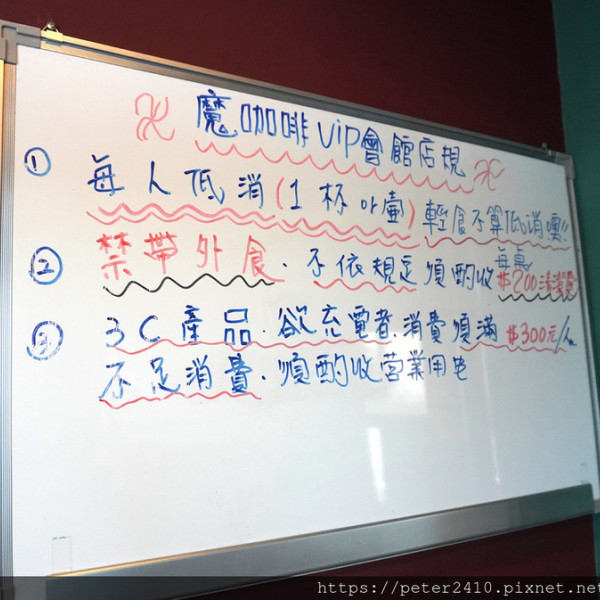 魔咖啡vip會館店規
① 每人低消(1杯or壺)輕食不算低消噢!!
② 禁帶外食.不依規定須酌收每桌$200清潔費
③ 3C產品.欲充電者.消費須滿$300元/人
不足消費.須酌收营業用电
https://peter2410.pixnet.net